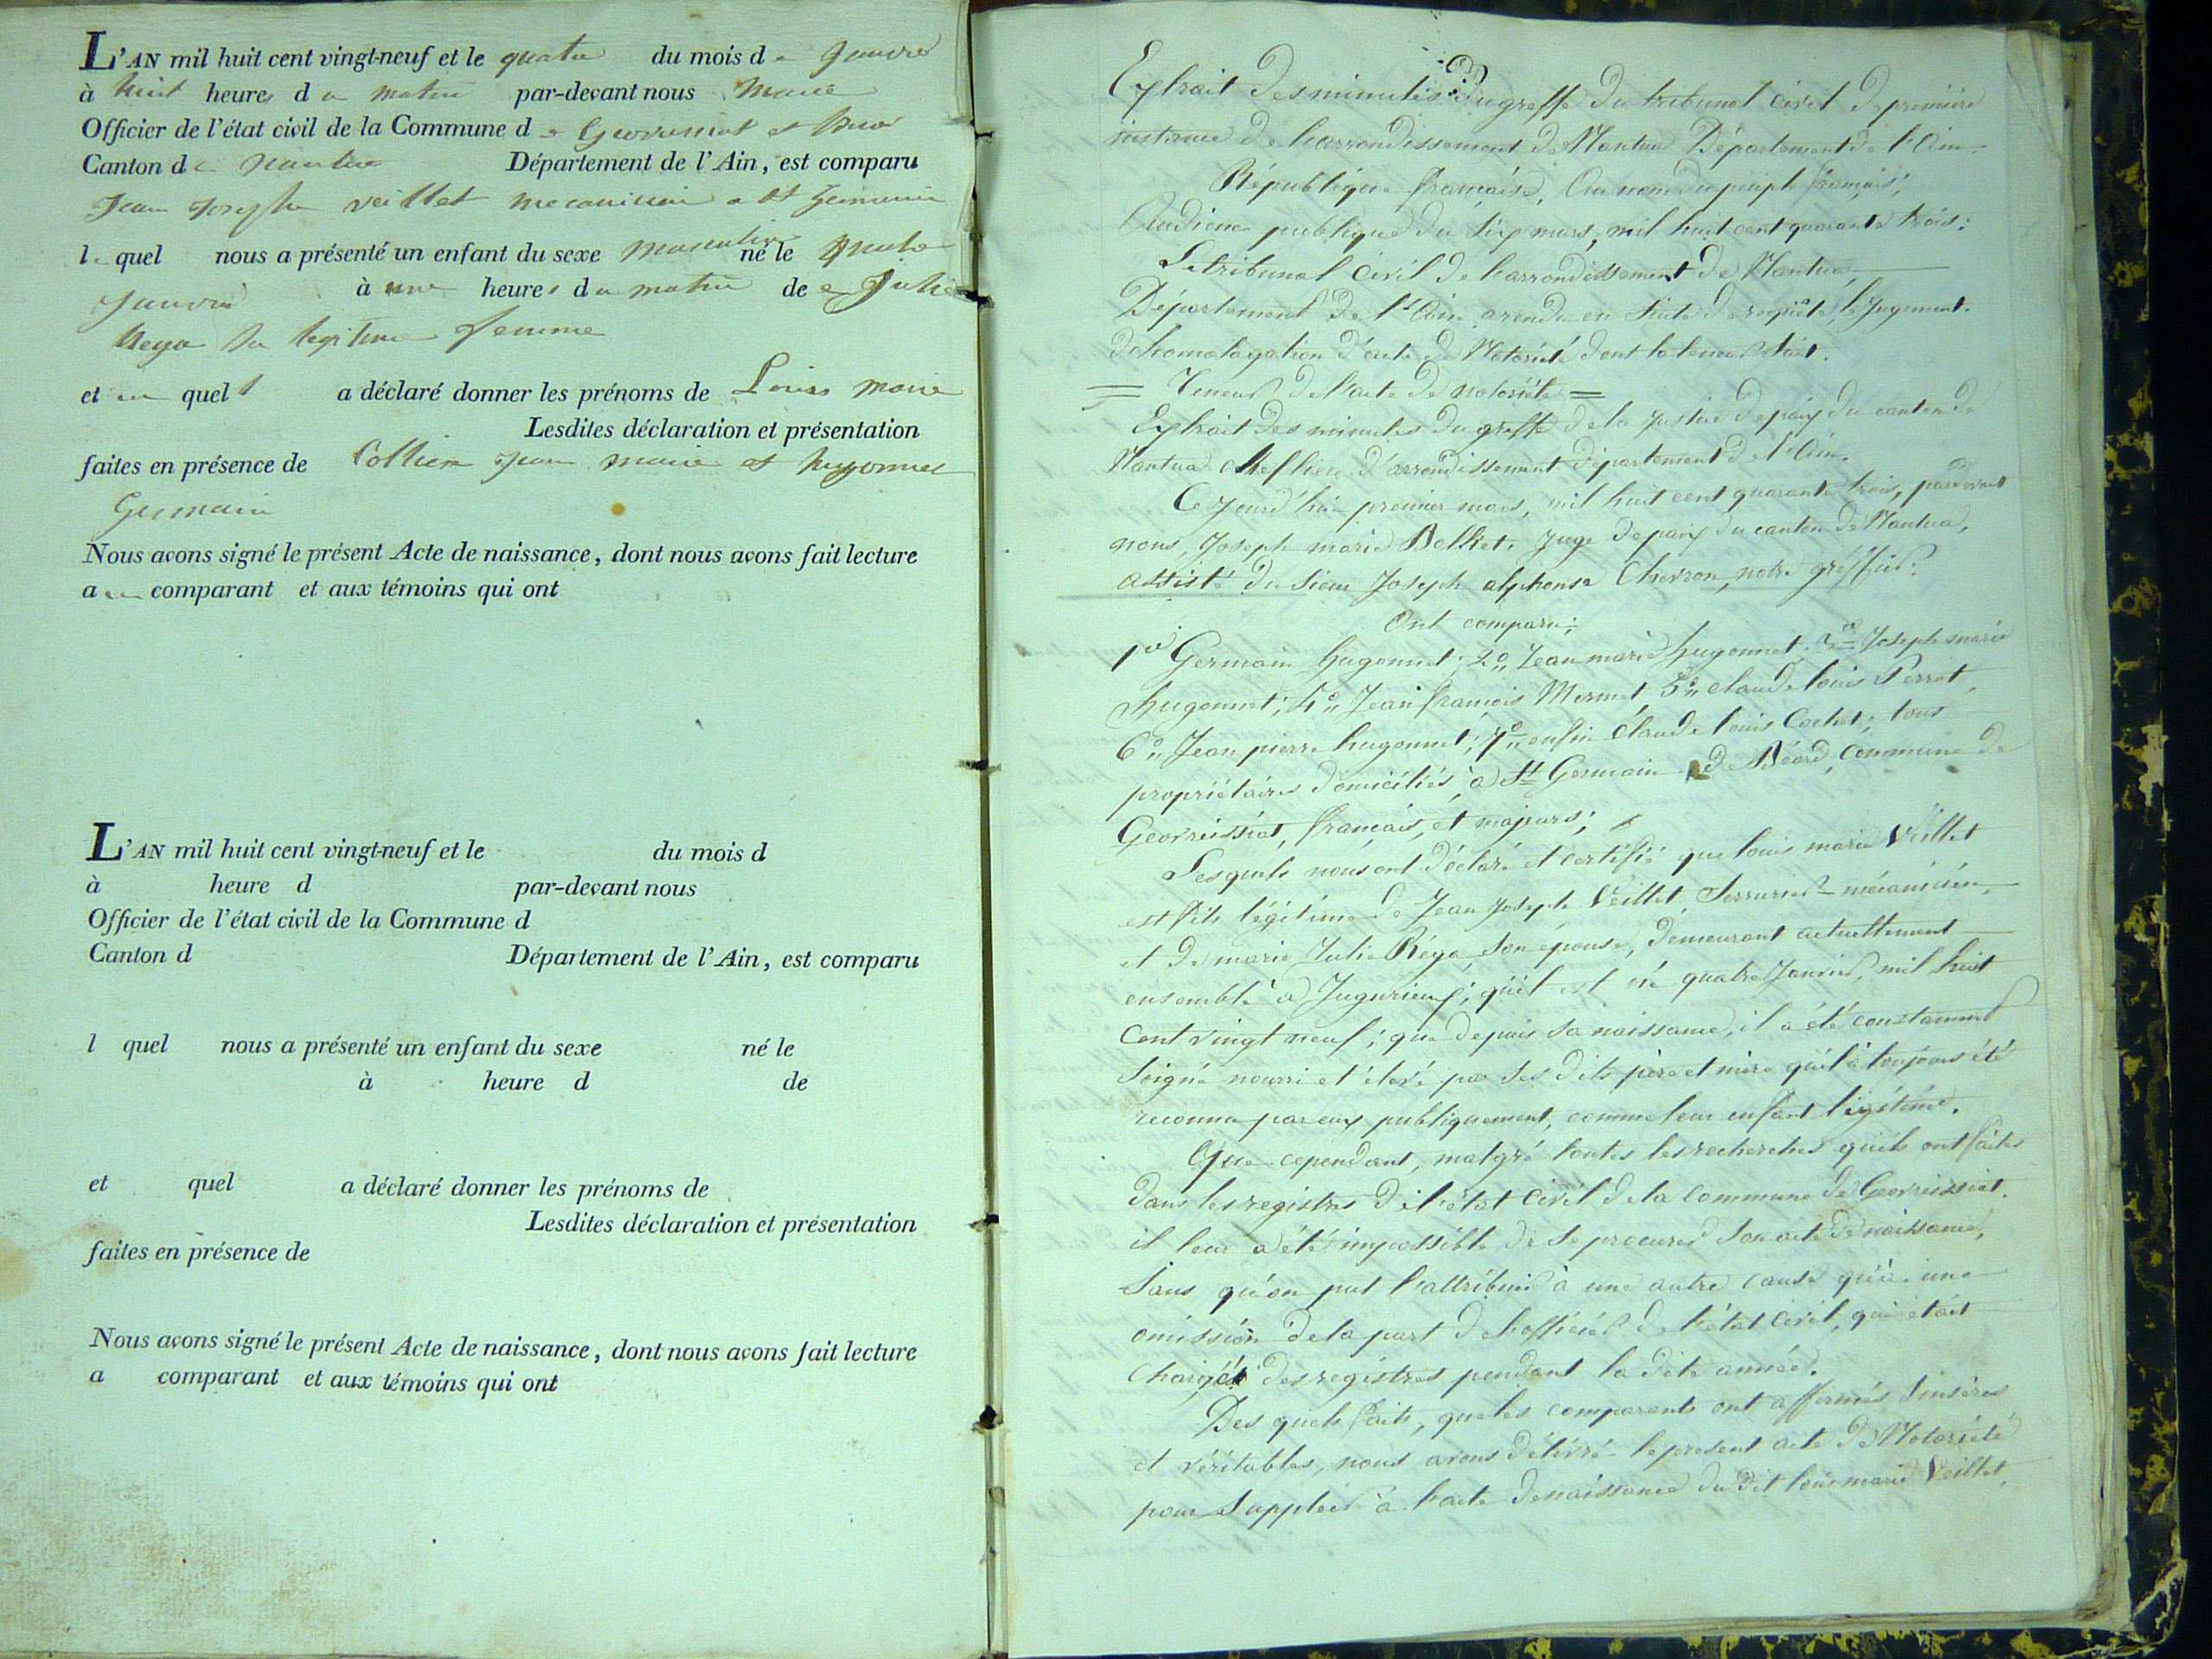 L'AN mil huit cent vingt-neuf et le quatre du mois de Janvier
à huit heures du matin par-devant nous Maire
Officier de l'état civil de la Commune de Geovressiat et
Canton de Nantua Département de l'Ain, est comparu
Jean Joseph veillet mecanicien a St Germain
lequel nous a présenté un enfant du sexe masculin né le quatre
Janvier à une heures du matin de Julie
Reya sa legitime femme
et au quel a déclaré donner les prénoms de Louis marie
Lesdites déclaration et présentation
faites en présence de Collier Jean marie et hugonnet
Germain
Nous avons signé le présent Acte de naissance, dont nous avons fait lecture
au comparant et aux témoins qui ont
L'AN mil huit cent vingt-neuf et le du mois d
à heure d par-devant nous
Officier de l'état civil de la Commune d
Canton d Département de l'Ain, est comparu
l quel nous a présenté un enfant du sexe né le
à heure d de
et quel a déclaré donner les prénoms de
Lesdites déclaration et présentation
faites en présence de
Nous avons signé le présent Acte de naissance, dont nous avons fait lecture
a comparant et aux témoins qui ont
Extrait des minutes du greffe du tribunal civil de première
instance de l'arrondissement de Nantua Département de l'Ain
République française, Au nom du peuple français;
Audience publique du six mars, mil huit cent quarante trois:
Le tribunal Civil de l'arrondissement de Nantua,
Département de l'Ain a rendu en suite de requête, le Jugement
d'homologation d'acte de Notoriété dont la teneur suit.
= Teneur de l'acte de notoriété =
Extrait des minutes du greffe de la Justice de paix du canton de
Nantua Cheflieu d'arrondissement département de l'Ain.
Ce Jourd'hui premier mars, mil huit cent quarante trois, pardevant
nous, Joseph marie Bolliet, Juge de paix du canton de Nantua,
assisté du Sieur Joseph alphonse Chevron, notre greffier:
Ont comparu;
1º Germain hugonnet; 2º, Jean marie hugonnet, 3º Joseph marie
hugonnet; 4º, Jean françois Mermet, 5º, claude louis Perret,
6º, Jean pierre hugonnet; 7º, enfin Claude louis Cochet; tous
propriétaires domiciliés à St Germain de Béard, commune de
Geovreissiat, français, et majeurs;
Lesquels nous ont déclaré et certifié que louis marie Veillet
est fils légitime de Jean Joseph Veillet, Serrurier-mécanicien,
et de marie Julie Réya, son épouse, demeurant actuellement
ensemble à Jugurieux; qu'il est né quatre Janvier, mil huit
cent vingt neuf; que depuis sa naissance, il a été constamment
soigné nourri et élevé par ses dits père et mère qu'il a toujours été
reconnu par eux publiquement, comme leur enfant légitime.
Que cependant, malgré toutes les recherches qu'ils ont faites
dans les registres de l'état Civil de la Commune de Geovreissiat
il leur a été impossible de se procurer son acte de naissance,
sans qu'on put l'attribuer à une autre cause qu'à une
omission de la part de l'officier de l'état Civil, qui était
chargé des registres pendant la dite année.
Des quels faits, que les comparants ont affirmés sincères
et véritables, nous avons délivré le présent acte de Notoriété
pour suppléer à l'acte de naissance du dit louis marie Veillet,